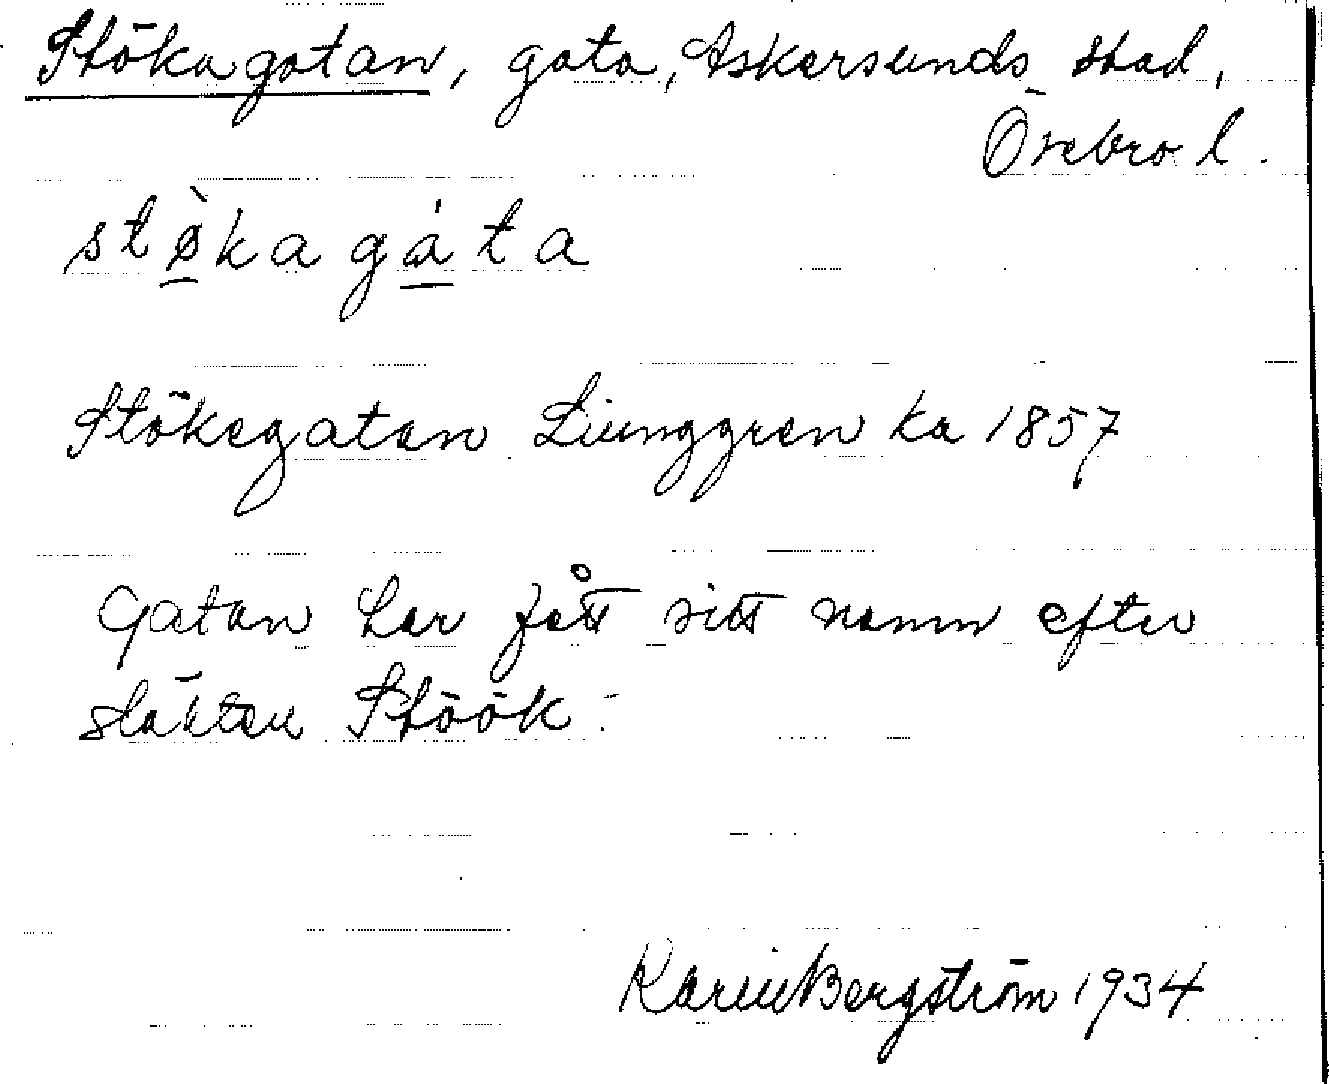 Stökagatan, gata, Askersunds stad,
Örebro l.
stø̀kagáta
Stökegatan Liunggren ka 1857
Gatan har fått sitt namn efter
släkten Stöök.
Karin Bergström 1934